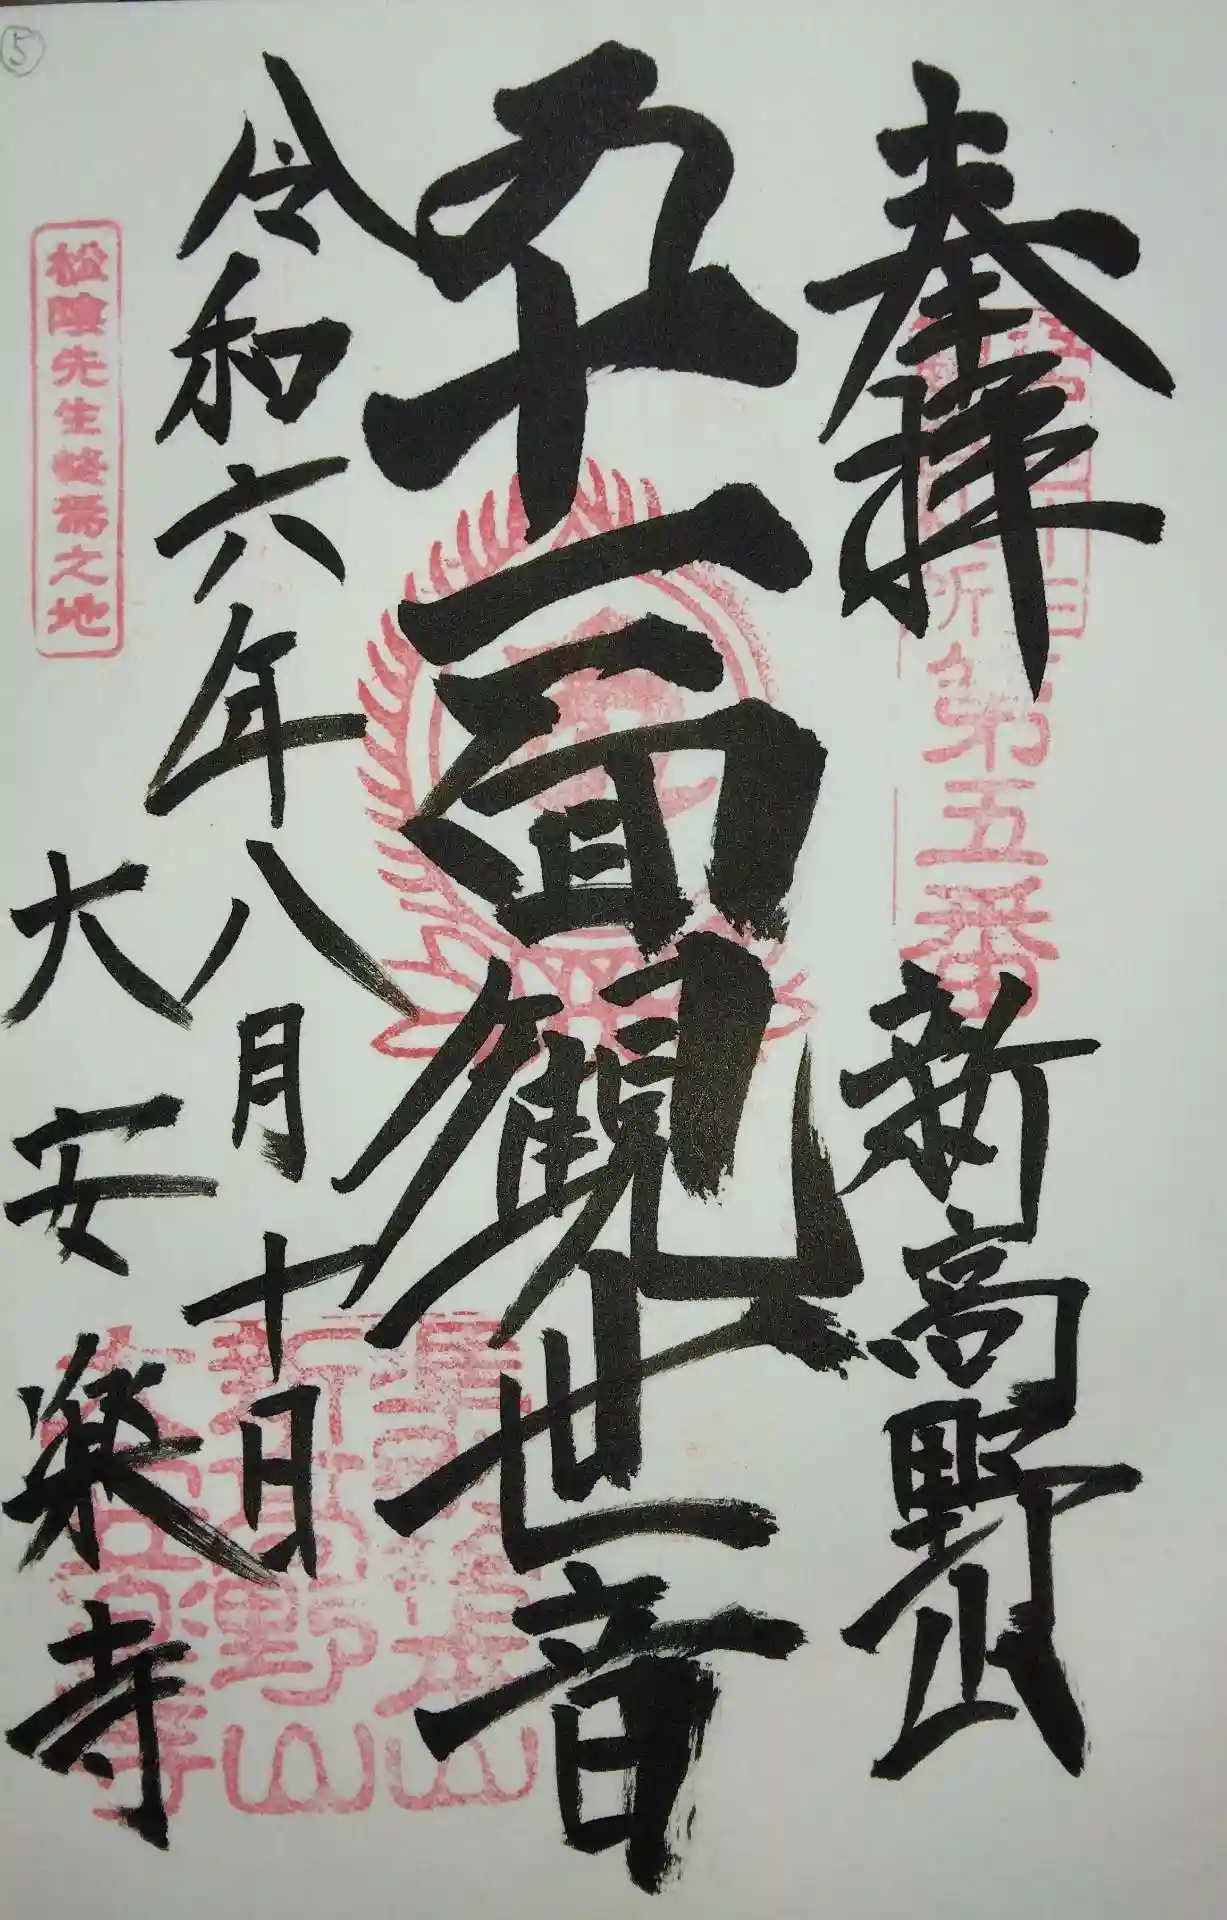 奉拝 新高野山
所第五番
十一面観世音
令和六年八月十日
大安楽寺
新高野山
大安楽寺
松陰先生終焉之地
5